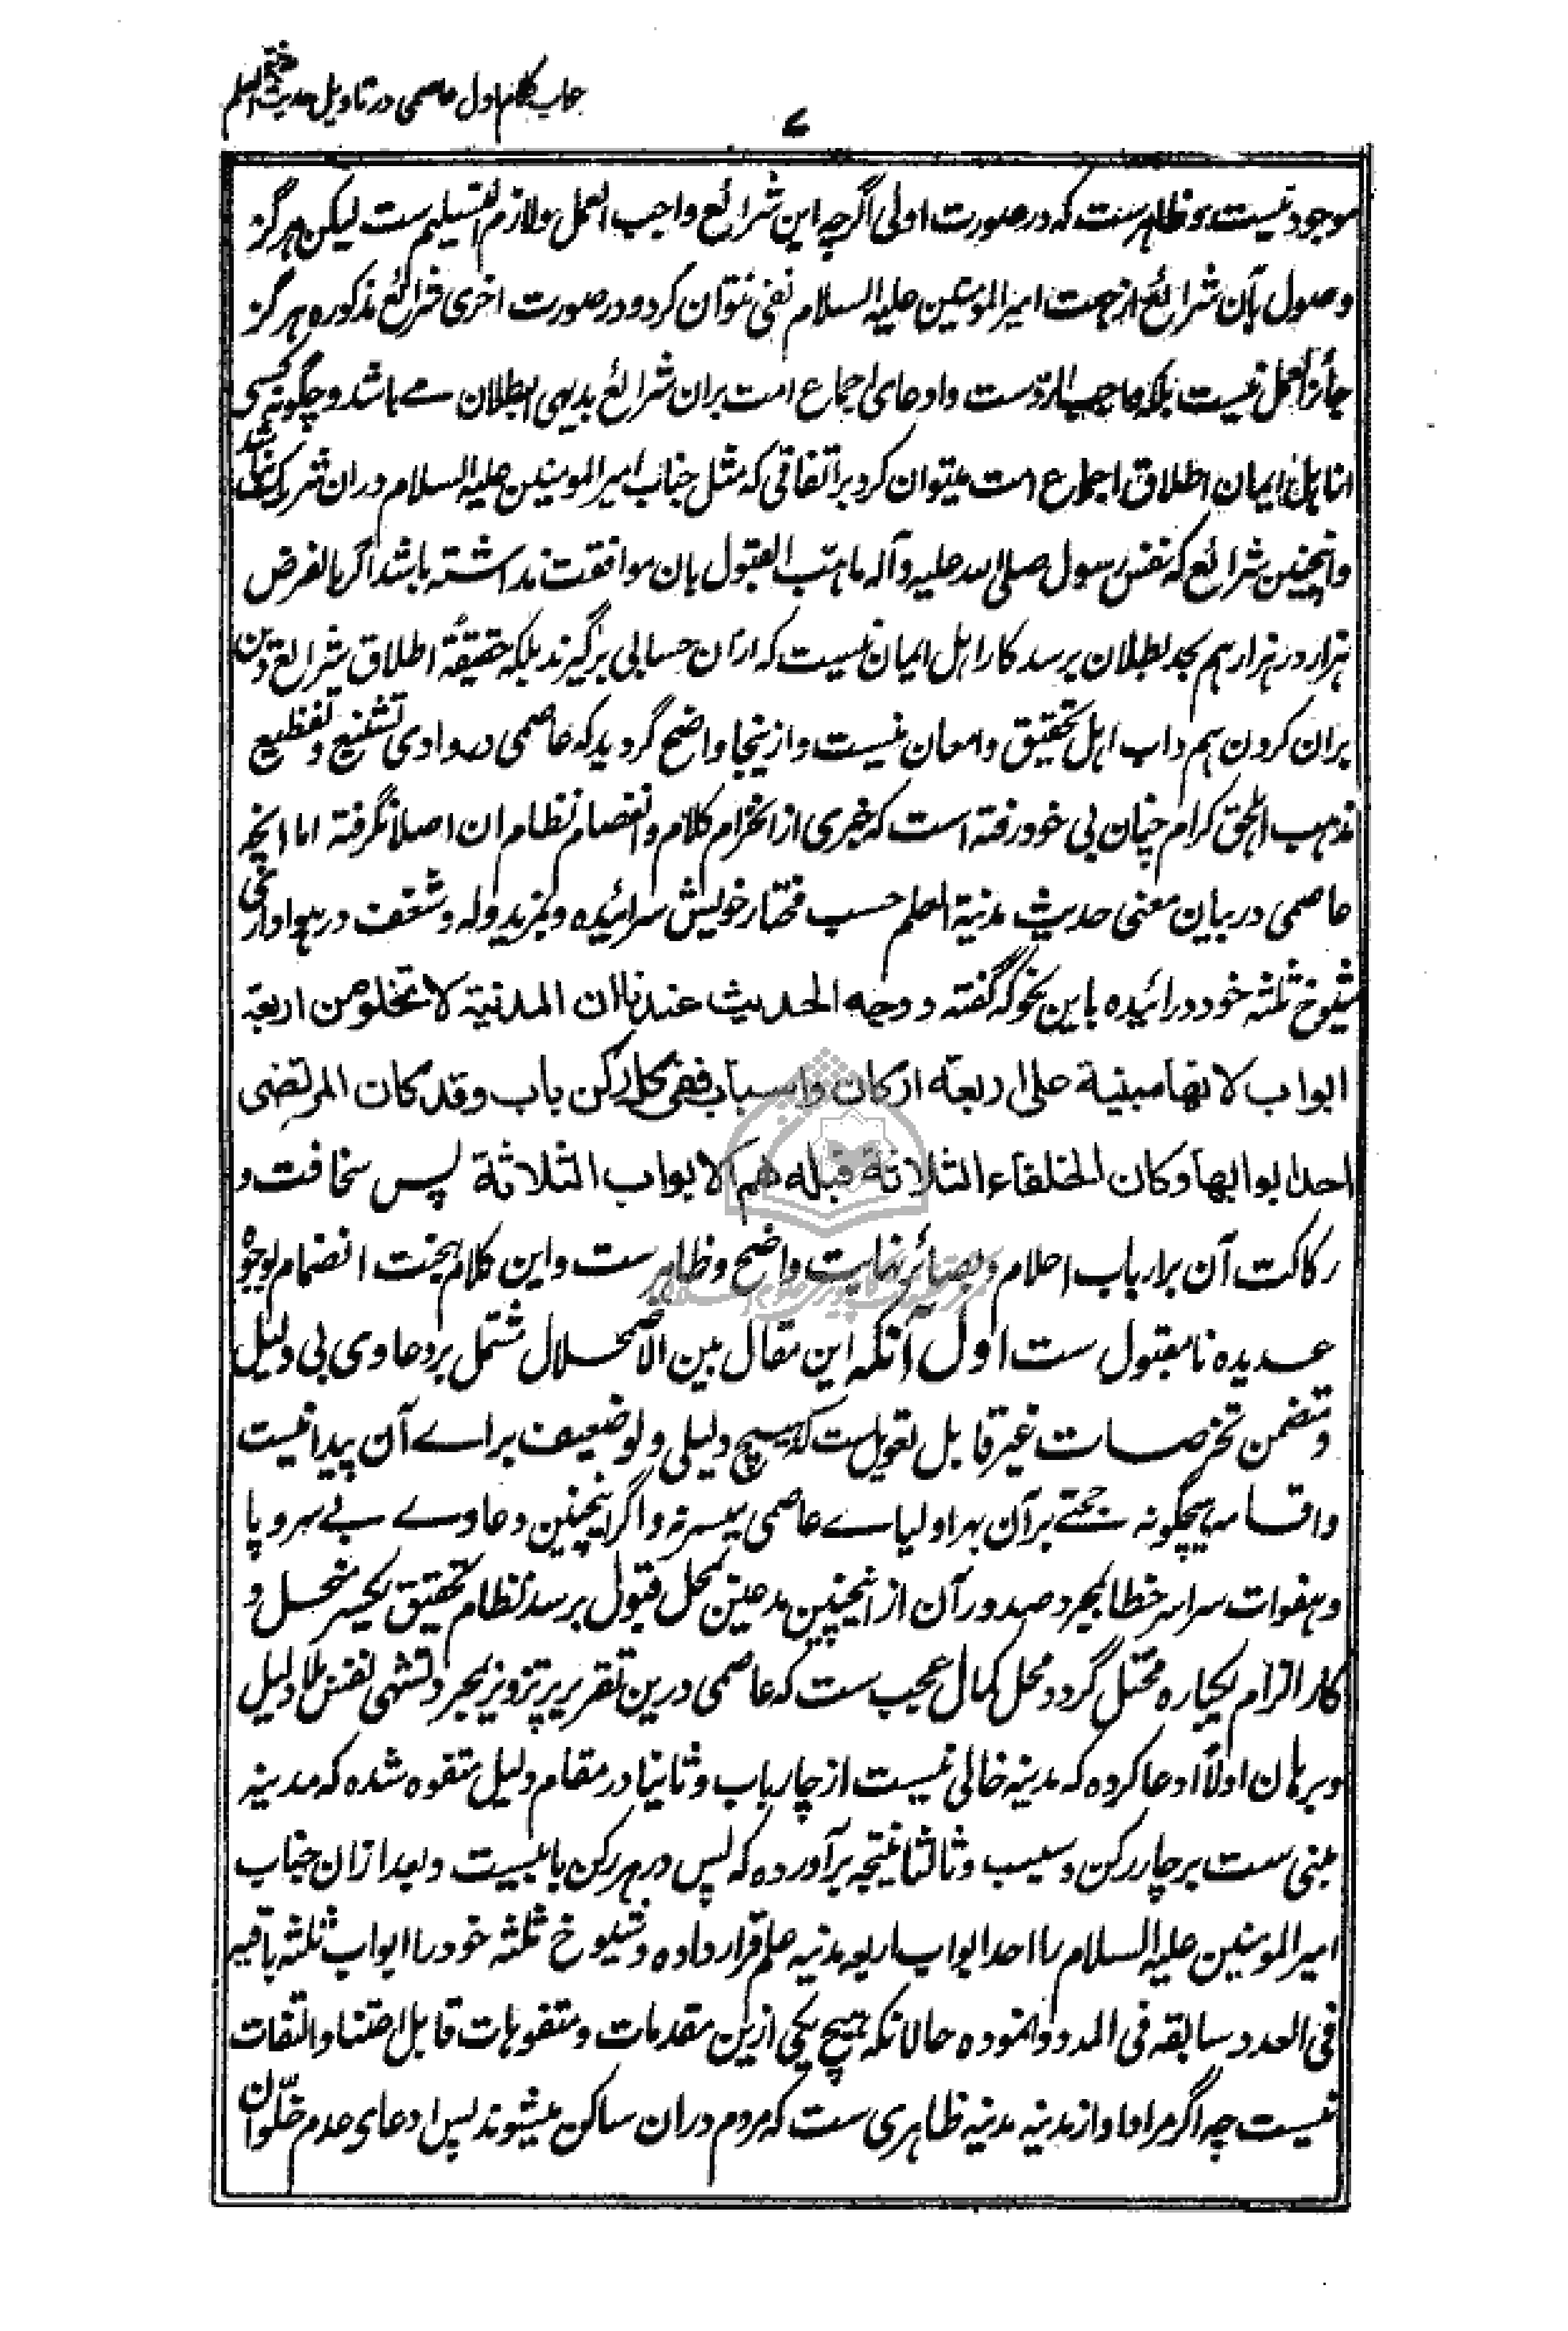 جواب کلام اول عاصمی در تاویل حدیث مدینة العلم
۷
موجود نیست و ظاهرست که در صورت اولی اگرچه این شرائع واجب العمل و لازم التسلیم ست لیکن هرگز
وصول بآن شرائع از جهت امیر المومنین علیه السلام نفی نتوان کرد و در صورت اخری شرائع مذکوره هرگز
جائز العمل نیست بلکه واجب الردّست و ادعای اجماع امت بران شرائع بدیهی البطلان مے باشد و چگونه کسی
از اهل ایمان اطلاق اجماع امت میتوان کرد بر اتفاقی که مثل جناب امیر المومنین علیه السلام دران شریک نباشد
و اینچنین شرائع که نفس رسول صلی الله علیه و آله ما هبّت القبول بان موافقت نداشته باشد اگر بالفرض
هزار در هزار هم بحد بطلان برسد کار اهل ایمان نیست که ازان حسابی برگیرند بلکه حقیقةً اطلاق شرائع دین
بران کردن هم داب اهل تحقیق و امعان نیست و ازینجا واضح گردید که عاصمی در وادی تشنیع و تفظیع
مذهب اهل حق کرام چنان بی خود رفته است که خبری از انخرام کلام و انفصام نظام ان اصلا نگرفته اما آنچه
عاصمی در بیان معنی حدیث مدینة العلم حسب مختار خویش سرائیده و بمزید وله و شغف در هواداری
شیوخ ثلثه خود درائیده باین نحو که گفته و وجه الحدیث عندنا ان المدینة لا تخلو من اربعة
ابواب لانها مبنیة علی اربعة ارکان و اسباب ففی کل رکن باب و قد کان المرتضی
احد ابوابها و کان الخلفاء الثلاثة قبله هم الابواب الثلاثة پس سخافت و
رکاکت آن بر ارباب احلام و بصائر نهایت واضح و ظاهر ست و این کلام بخت انضمام بوجوه
عدیده نامقبول ست اول آنکه این مقال بین الاضمحلال مشتمل بر دعاوی بی دلیل
و متضمن تخرصات غیر قابل تعویل ست که هیچ دلیلی و لو ضعیف براے آن پیدا نیست
و اقامه هیچگونه حجتے بر آن بهر اولیاے عاصمی میسر نه و اگر اینچنین دعاوے بے سر و پا
و هفوات سراسر خطا بمجرد صدور آن از اینچنین مدعین بمحل قبول برسد نظام تحقیق یکسر منحل و
کار الزام یکباره مختل گردد و محل کمال عجیب ست که عاصمی درین تقریر پرتزویر بمجرد تشهی نفس بلا دلیل
و برهان اولاً ادعا کرده که مدینه خالی نیست از چار باب و ثانیا در مقام دلیل متفوه شده که مدینه
مبنی ست بر چار رکن و سبب و ثالثا نتیجه برآورده که پس در هر رکن بابیست و بعد ازان جناب
امیر المومنین علیه السلام را احد ابواب اربعه مدینه علم قرار داده و شیوخ ثلثه خود را ابواب ثلثه باقیه
فی العدد سابقه فی المدد وانموده حالانکه هیچ یکی ازین مقدمات و متفوهات قابل اعتنا و التفات
نیست چه اگر مراد او از مدینه مدینه ظاهری ست که مردم دران ساکن میشوند پس ادعای عدم خلوّ ان